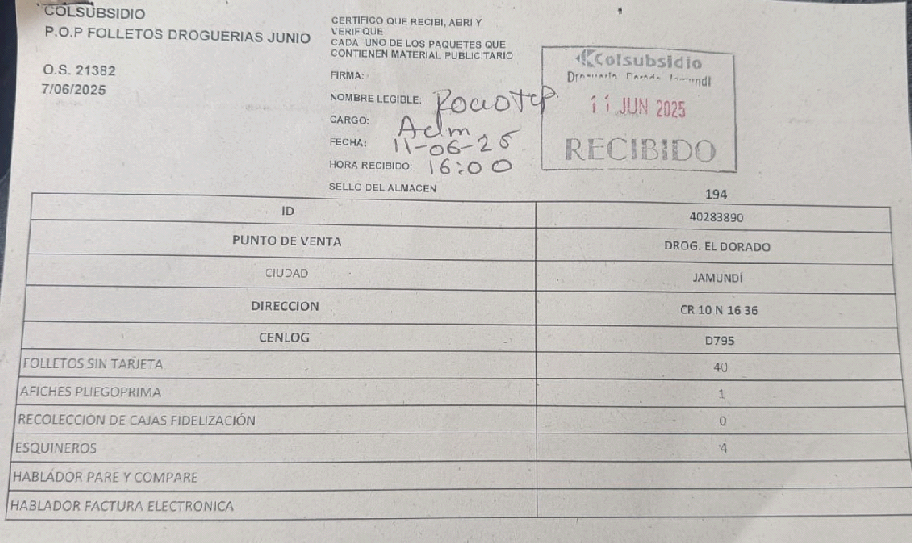 COLSUBSIDIO
P.O.P FOLLETOS DROGUERIAS JUNIO
O.S. 21382
7/06/2025
CERTIFICO QUE RECIBI, ABRI Y
VERIFIQUE
CADA UNO DE LOS PAQUETES QUE
CONTIENEN MATERIAL PUBLICITARIO
FIRMA:
NOMBRE LEGIBLE:
CARGO: Adm
FECHA: 11-06-25
HORA RECIBIDO 16:00
SELLO DEL ALMACEN
Colsubsidio
11 JUN 2025
RECIBIDO
194
ID 40283890
PUNTO DE VENTA DROG. EL DORADO
CIUDAD JAMUNDÍ
DIRECCION CR 10 N 16 36
CENLOG D795
FOLLETOS SIN TARJETA 40
AFICHES PLIEGOPRIMA 1
RECOLECCIÓN DE CAJAS FIDELIZACIÓN 0
ESQUINEROS 4
HABLADOR PARE Y COMPARE
HABLADOR FACTURA ELECTRONICA